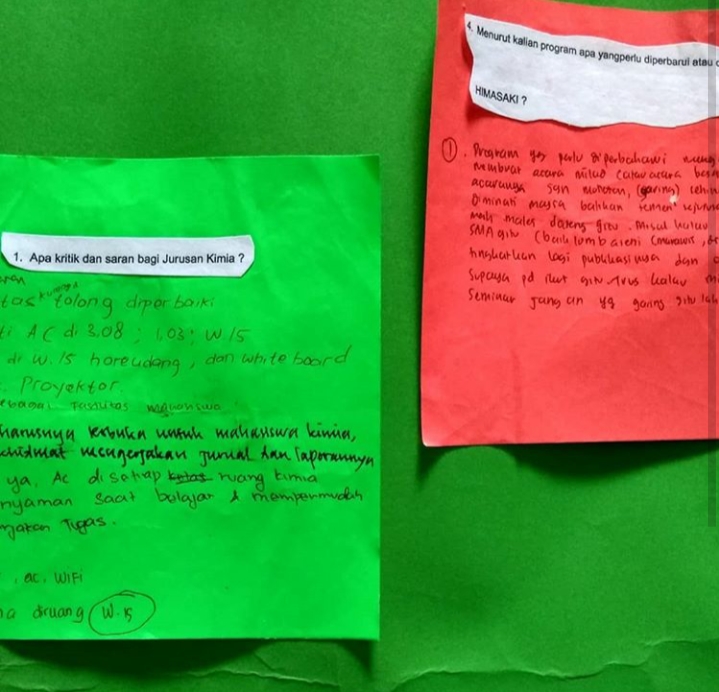 1. Apa kritik dan saran bagi Jurusan Kimia ?
tolong diperbaiki
AC di 3.08 ; 1.03 ; W.15
di W.15 hareudang, dan white board
Proyektor
harusnya terbuka untuk mahasiswa kimia,
mengerjakan jurnal dan laporannya
ya, AC disetiap ruang kimia
nyaman saat belajar & mempermudah
Tugas.
, ac, WIFI
diruang W.15
4. Menurut kalian program apa yangperlu diperbarui atau
HIMASAKI ?
1. Program yg perlu diperbaharui
membuat acara milad (atau acara
acaranya (garing)
Diminati masa bahkan temen"
males dateng gitu. Misal kalau
SMA gitu (bank lomba seni (marawis,
tingkatkan lagi publikasinya dan
Supaya pd ikut gitu. Trus kalau
Seminar jangan yg garing gitu lah